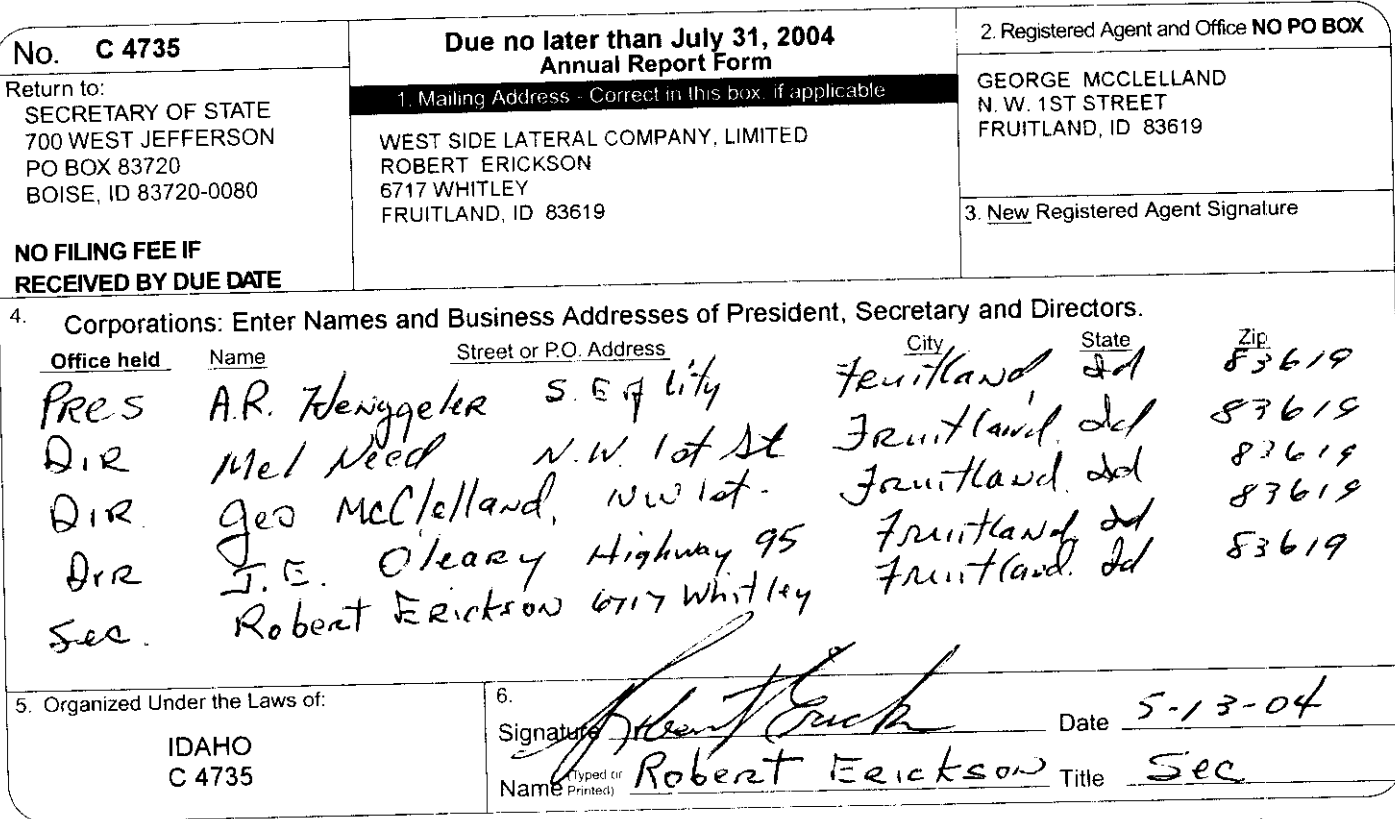 No. C 4735
Return to:
SECRETARY OF STATE
700 WEST JEFFERSON
PO BOX 83720
BOISE, ID 83720-0080
NO FILING FEE IF
RECEIVED BY DUE DATE
Due no later than July 31, 2004
Annual Report Form
1. Mailing Address - Correct in this box, if applicable
WEST SIDE LATERAL COMPANY, LIMITED
ROBERT ERICKSON
6717 WHITLEY
FRUITLAND, ID 83619
2. Registered Agent and Office NO PO BOX
GEORGE MCCLELLAND
N. W. 1ST STREET
FRUITLAND, ID 83619
3. New Registered Agent Signature
4. Corporations: Enter Names and Business Addresses of President, Secretary and Directors.
Office held Name Street or P.O. Address City State Zip
Pres A.R. Henggeler S. E of City Fruitland, Id 83619
Dir Mel Need N.W. 1st St Fruitland. Id 83619
Dir. Geo McClelland, NW 1st. Fruitland. Id 83619
Dir J.E. O'leary Highway 95 Fruitland, Id 83619
Sec. Robert Erickson 6717 Whitley Fruitland. Id 83619
5. Organized Under the Laws of:
IDAHO
C 4735
6.
Signature Robert Erick Date 5-13-04
Name (Typed or Printed) Robert Erickson Title Sec